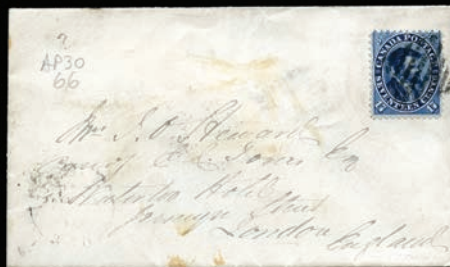 ?
AP30
66
CANADA POSTAGE
SEVENTEEN CENTS
Mr J. O. Steward
Waterloo Hotel
Jermyn Street
London
England